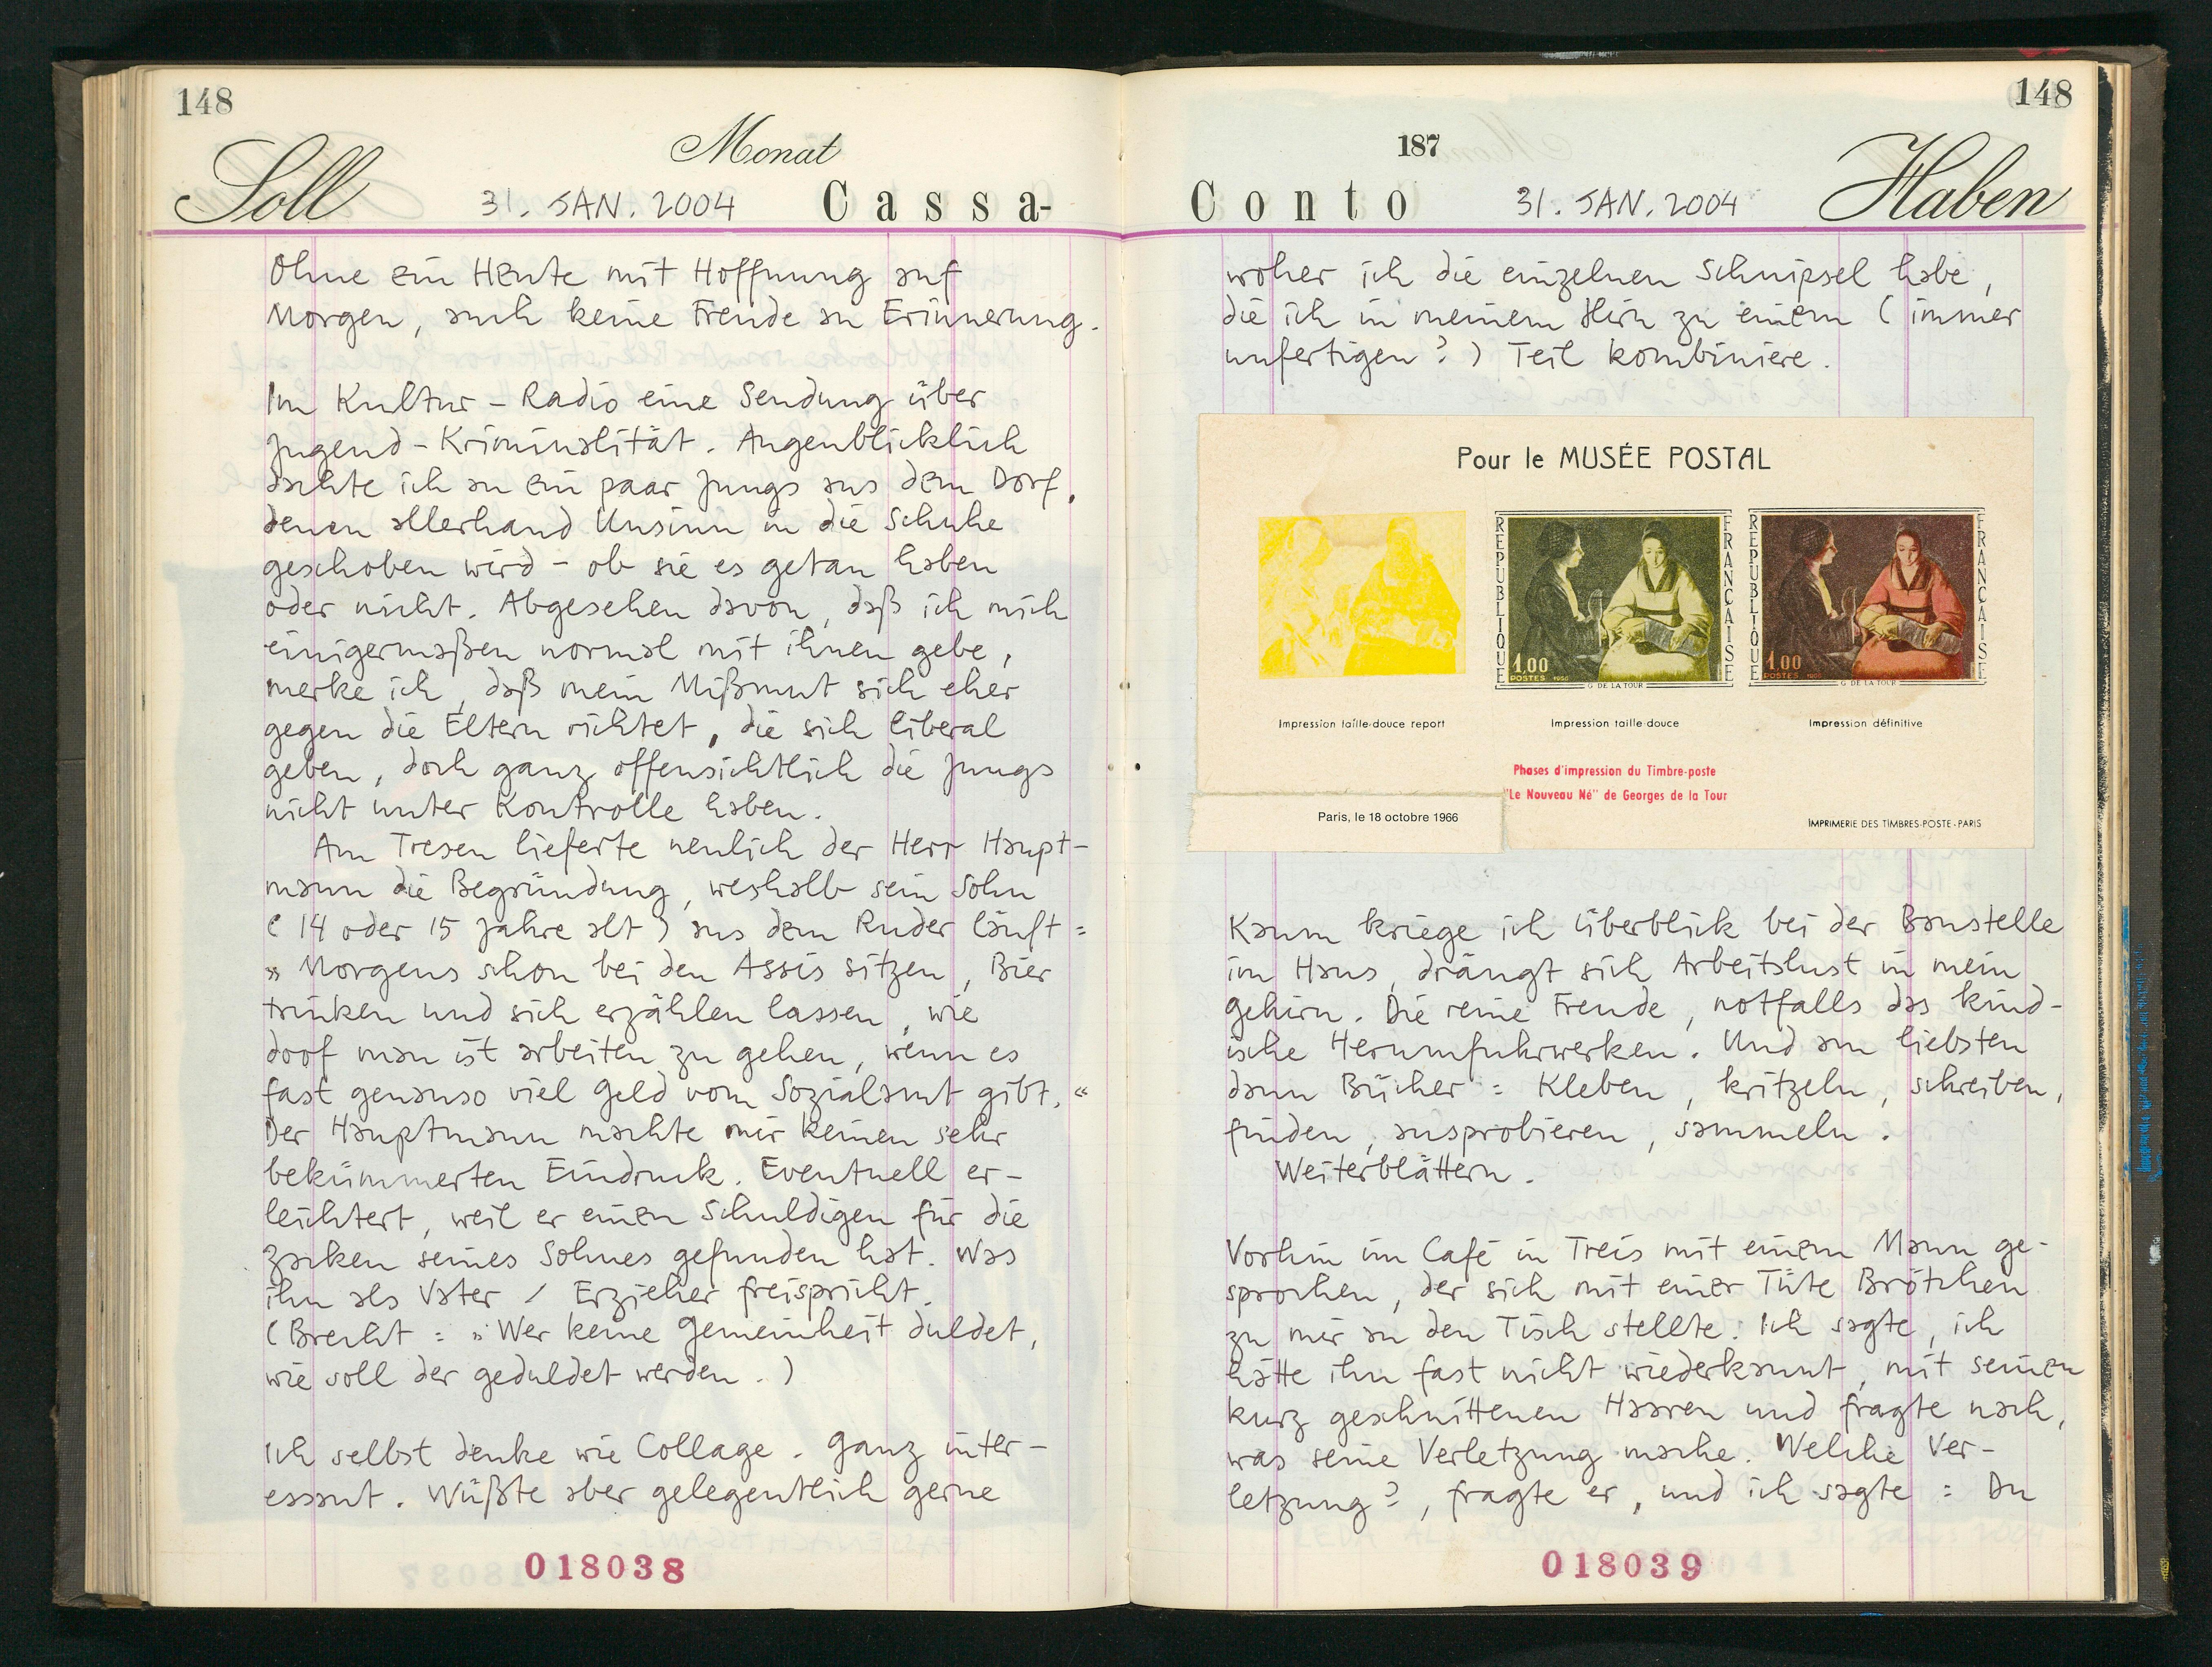 148
Monat
Soll
31. JAN. 2004
Cassa-
Ohne ein Heute mit Hoffnung auf
Morgen, auch keine Freude an Erinnerung.
Im Kultur-Radio eine Sendung über
Jugend-Kriminalität. Augenblicklich
dachte ich an ein paar Jungs aus dem Dorf,
denen allerhand Unsinn in die Schuhe
geschoben wird - ob sie es getan haben
oder nicht. Abgesehen davon, daß ich mich
einigermaßen normal mit ihnen gebe,
merke ich, daß mein Mißmut sich eher
gegen die Eltern richtet, die sich liberal
geben, doch ganz offensichtlich die Jungs
nicht unter Kontrolle haben.
Am Tresen lieferte neulich der Herr Haupt-
mann die Begründung, weshalb sein Sohn
(14 oder 15 Jahre alt) aus dem Ruder läuft:
» Morgens schon bei den Assis sitzen, Bier
trinken und sich erzählen lassen, wie
doof man ist arbeiten zu gehen, wenn es
fast genauso viel Geld vom Sozialamt gibt. «
Der Hauptmann machte mir keinen sehr
bekümmerten Eindruck. Eventuell er-
leichtert, weil er einen Schuldigen für die
Zacken seines Sohnes gefunden hat. Was
ihn als Vater / Erzieher freispricht.
(Brecht: » Wer keine Gemeinheit duldet,
wie soll der geduldet werden.)
Ich selbst denke wie Collage. Ganz inter-
essant. Wüßte aber gelegentlich gerne
018038
148
187
Conto
31. JAN. 2004
Haben
woher ich die einzelnen Schnipsel habe,
die ich in meinem Hirn zu einem (immer
unfertigen?) Teil kombiniere.
Pour le MUSÉE POSTAL
REPUBLIQUE
FRANCAISE
1,00
POSTES 1966
G. DE LA TOUR
REPUBLIQUE
FRANCAISE
1,00
POSTES 1966
G. DE LA TOUR
Impression taille-douce report
Impression taille douce
Impression définitive
Phases d'impression du Timbre-poste
"Le Nouveau Né" de Georges de la Tour
Paris, le 18 octobre 1966
IMPRIMERIE DES TIMBRES-POSTE - PARIS
Kaum kriege ich Überblick bei der Baustelle
im Haus, drängt sich Arbeitslust in mein
Gehirn. Die reine Freude, notfalls das kind-
ische Herumfuhrwerken. Und am liebsten
dann Bücher: Kleben, kritzeln, schreiben,
finden, ausprobieren, sammeln.
Weiterblättern.
Vorhin im Café in Treis mit einem Mann ge-
sprochen, der sich mit einer Tüte Brötchen
zu mir an den Tisch stellte. Ich sagte, ich
hätte ihn fast nicht wiederkannt, mit seinen
kurz geschnittenen Haaren und fragte nach,
was seine Verletzung mache. Welche Ver-
letzung?, fragte er, und ich sagte: Du
018039